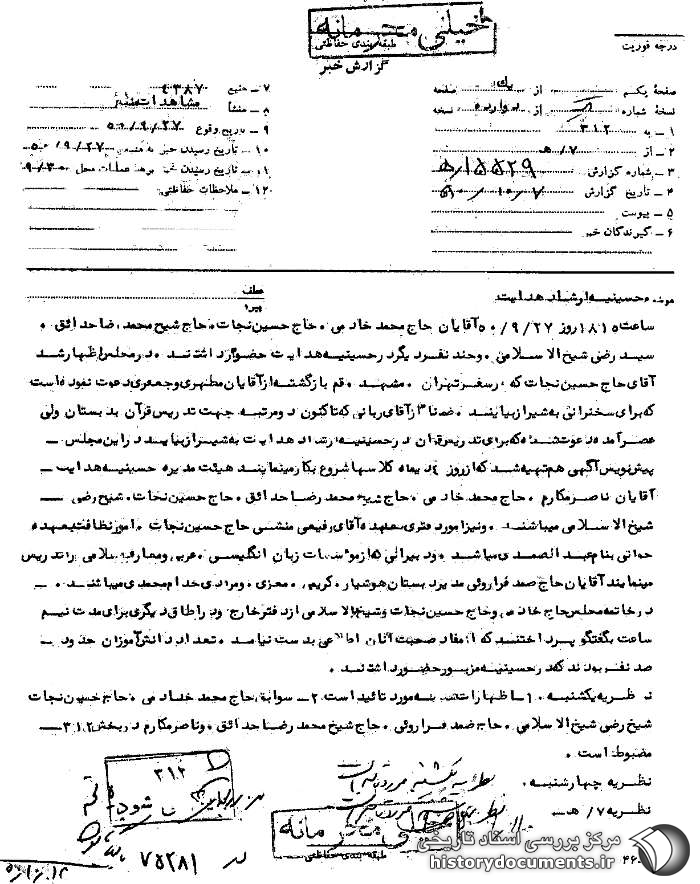 خیلی محرمانه
طبقه بندی حفاظتی
گزارش خبر
درجه فوریت
صفحهٔ یکم از یک صفحه
نسخهٔ شماره از چهار نسخه
۱ – به ۳۱۲
۲ – از ۷/ هـ
۳ – شماره گزارش ۱۵۵۲۹/هـ
۴ – تاریخ گزارش ۵۰/۱۰/۷
۵ – پیوست
۶ – گیرندگان خبر
۷ – منبع ۴۳۸۷
۸ – منشأ مشاهدات منبع
۹ – تاریخ وقوع ۵۰/۹/۲۷
۱۰ – تاریخ رسیدن خبر به منبع ۵۰/۹/۲۷
۱۱ – تاریخ رسیدن خبر برهبر عملیات محل ۹/۳۰
۱۲ – ملاحظات حفاظتی
موضوع حسینیه ارشاد هدایت
عطف
پیرو
ساعت ۱۸۱۵ روز ۵۰/۹/۲۷ آقایان حاج محمد خادمی ٠ حاج حسین نجات ٠ حاج شیخ محمد رضا حدائق ٠
سید رضی شیخ الاسلامی ٠ و چند نفر دیگر در حسینیه هدایت حضور داشتند ٠ در مجلس اظهار شد
آقای حاج حسین نجات که در سفر تهران ٠ مشهد ٠ قم بازگشته از آقایان مطهری و جعفری دعوت نموده است
که برای سخنرانی به شیراز بیایند ٠ ضمنا" از آقای ربانی که تاکنون دو مرتبه جهت تدریس قرآن بدبستان ولی
عصر آمده دعوت شده که برای تدریس قرآن در حسینیه ارشاد هدایت به شیراز بیایند در این مجلس –
پیش نویس آگهی هم تهیه شد که از روز ٤ دیماه کلاسها شروع بکار مینمایند هیئت مدیره حسینیه هدایت –
آقایان ناصر مکارم ٠ حاج محمد خادمی ٠ حاج شیخ محمد رضا حدائق ٠ حاج حسین نجات ٠ شیخ رضی –
شیخ الاسلامی میباشند ٠ و نیز امور دفتری بعهده آقای رفیعی منشی حاج حسین نجات ٠ امور نظافت بعهده
جوانی بنام عبد الصمدی میباشد ٠ و دبیرانی که از مؤسسات زبان انگلیسی ٠ عربی و معارف اسلامی را تدریس
مینمایند آقایان حاج صمد فراروئی مدیر دبستان هوشیار ٠ کریمی ٠ معزی ٠ و مرادی خدام محمدی میباشند ٠ –
در خاتمه مجلس حاج خادمی و حاج حسین نجات و شیخ الاسلامی از دفتر خارج و در اطاق دیگری برای مدت نیم
ساعت بگفتگو پرداختند که از مفاد صحبت آنان اطلاعی بدست نیامد ٠ تعداد دانش آموزان حدود یک
صد نفر بودند که در حسینیه مزبور حضور داشتند ٠
نظریه یکشنبه ٠ ۱– اظهارات شنبه مورد تائید است ۲– سوابق حاج محمد خادمی ٠ حاج حسین نجات
شیخ رضی شیخ الاسلامی ٠ حاج صمد فراروئی ٠ حاج شیخ محمد رضا حدائق ٠ و ناصر مکارم در بخش ۳۱۲ –
مضبوط است ٠
نظریه چهارشنبه ٠ نظریه یکشنبه مورد تائید است
نظریه ۷/ هـ –
۳۱۲
شود
خیلی محرمانه
طبقه بندی حفاظتی
۷۵۲۸۱
مرکز بررسی اسناد تاریخی
historydocuments.ir